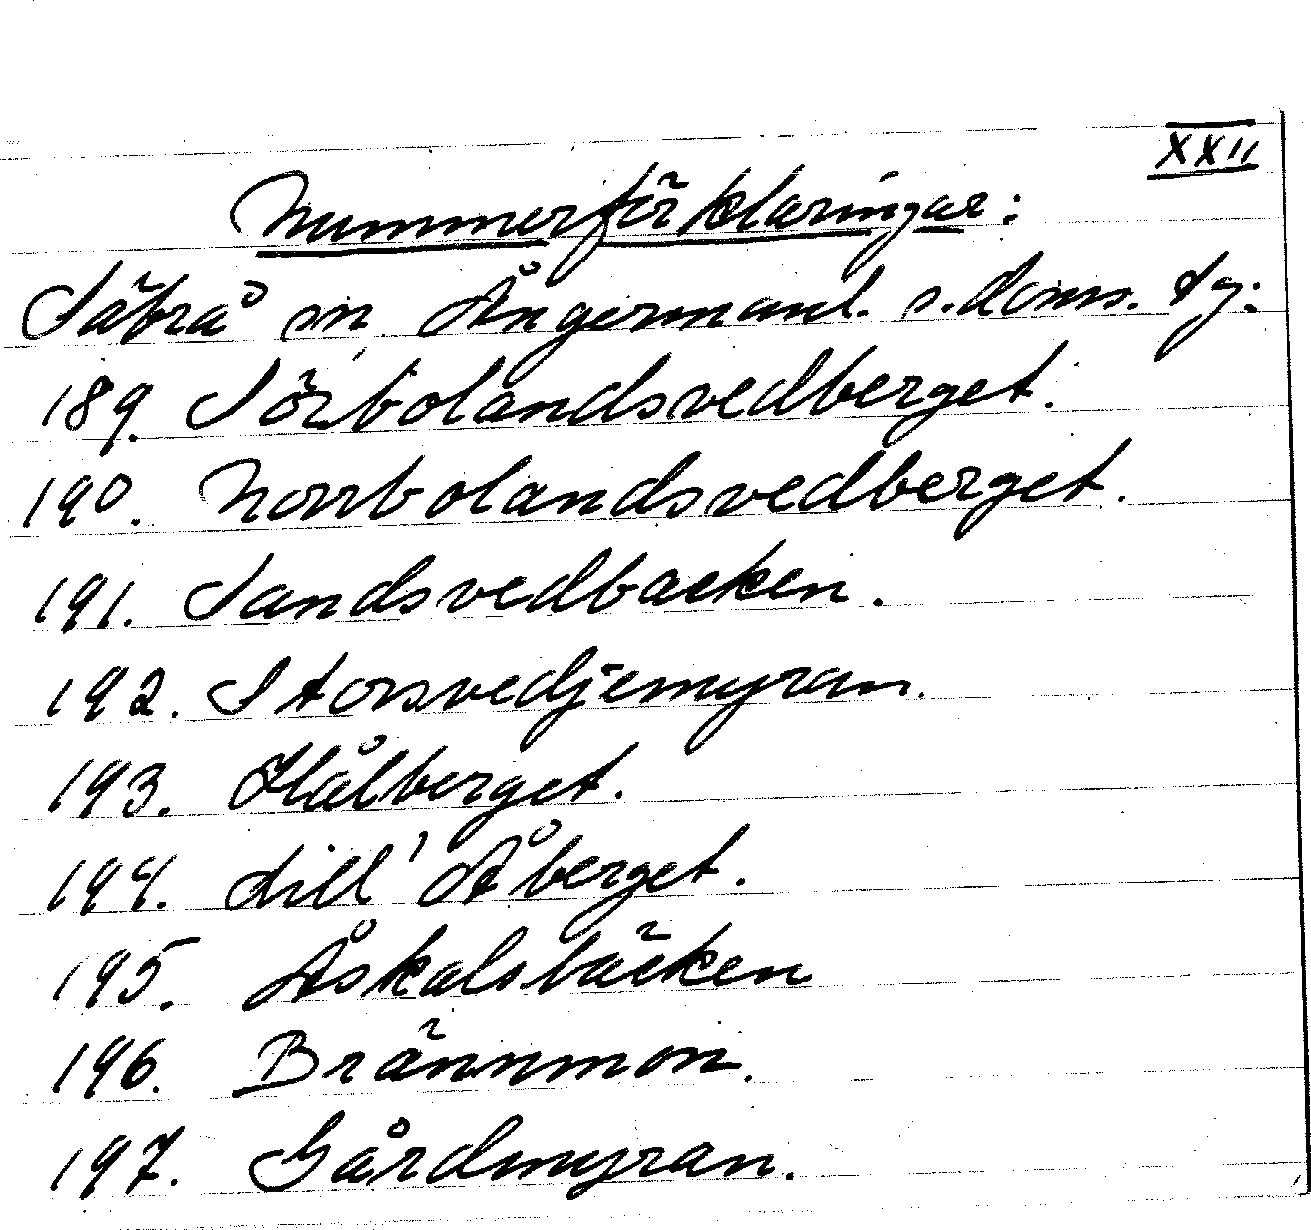 XXII
Nummerförklaringar:
Säbrå sn Ångermanl. s. doms. tg:
189. Sörbolandsvedberget.
190. Norrbolandsvedberget.
191. Sandsvedbacken.
192. Storsvedjemyran.
193. Hålberget.
194. Lill'Åberget.
195. Åskalsbäcken
196. Brännmon.
197. Gårdmyran.